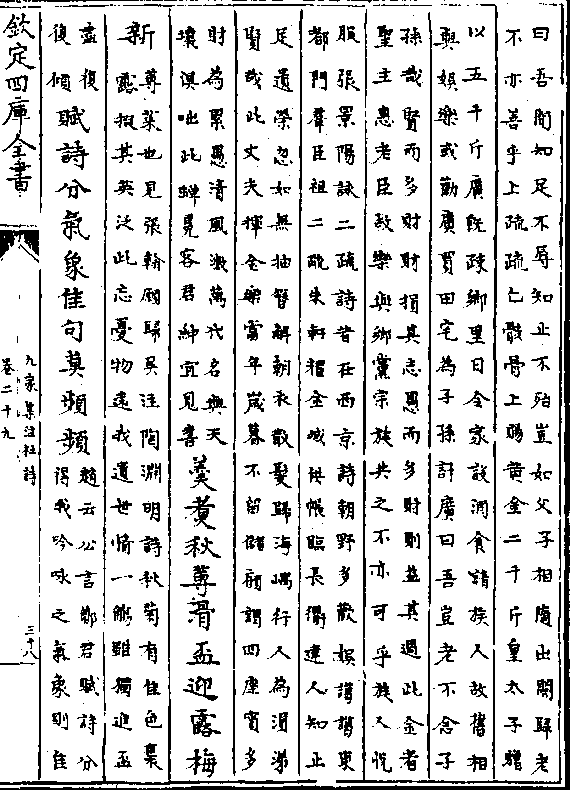 曰吾聞知足不辱知止不殆豈如父子相隨出關歸老
不亦善乎上疏疏乞骸骨上賜黃金二千斤皇太子贈
以五千斤廣既疎鄉里日令家設酒食請族人故舊相
與娛樂或勸廣買田宅為子孫計廣曰吾豈老不念子
孫哉賢而多財財損其志愚而多財則益其過此金者
聖主惠老臣故樂與鄉黨宗族共之不亦可乎族人悅
服張景陽詠二疏詩昔在西京詩朝野多歡娛藹藹東
都門羣臣祖二疏朱軒耀金城供帳臨長衢達人知止
足遺榮忽如無抽簪解朝衣散髮歸海嵎行人為涕
賢哉此丈夫揮金樂當年歲暮不留儲顧謂四座賓多
財為累愚清風激萬代名與天
壤俱咄此蟬冕客君紳宜見書
羹煑秋蓴滑盃迎露梅
新蓴菜也見張翰顧歸吳注陶淵明詩秋菊有佳色裛
新露掇其英泛此忘憂物遠我遺世情一觴雖獨進盃
盡復
復傾
賦詩分氣象佳句莫頻頻
趙云公言鄭君賦詩分
得我吟咏之氣象則佳
欽定四庫全書
九家集注杜詩
卷二十九
三十八